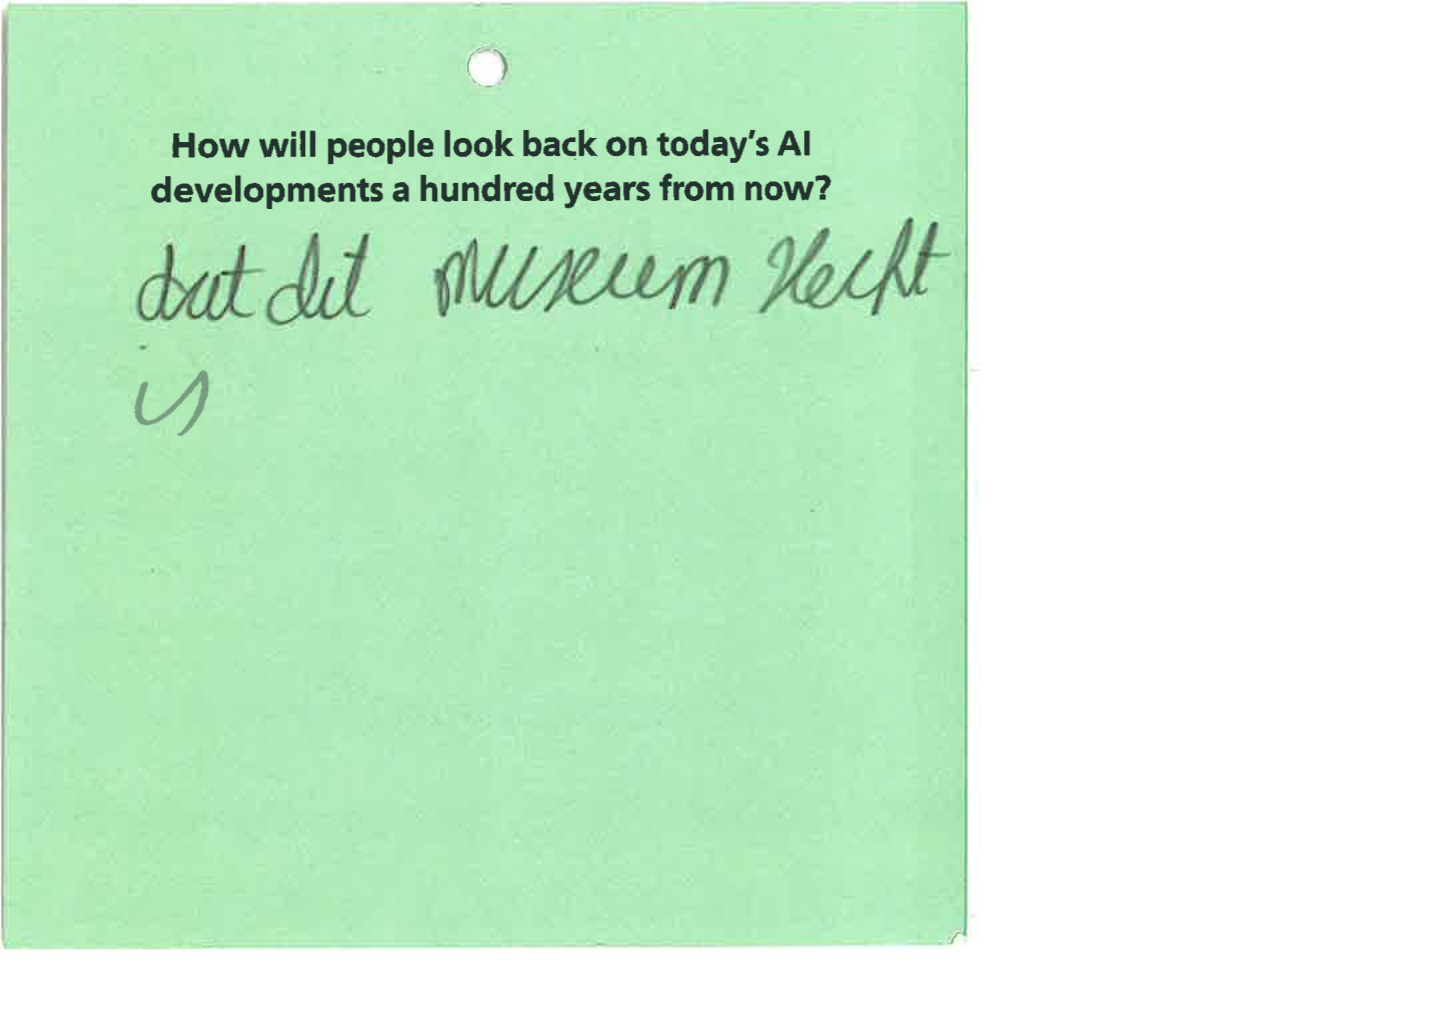 How will people look back on today's AI
developments a hundred years from now?
dat dit museum slecht
is